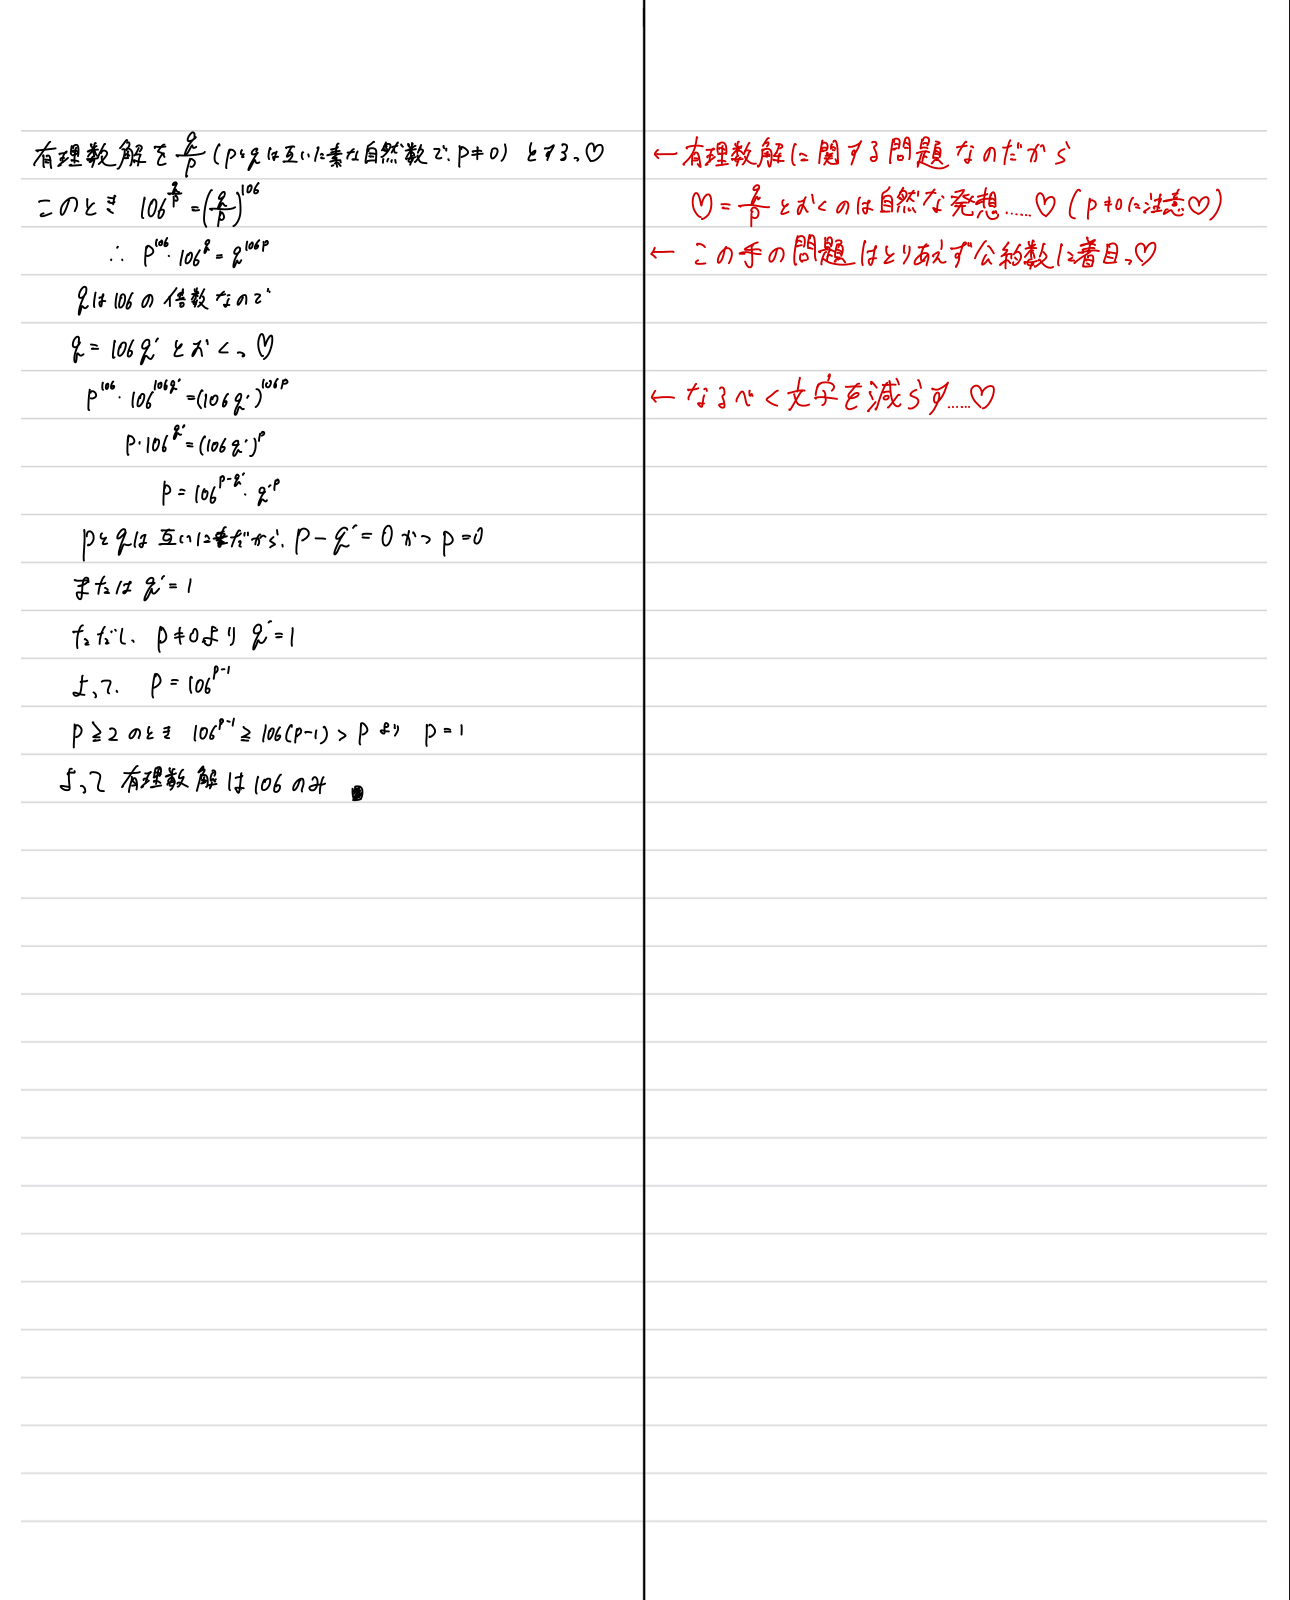 有理数解を q/p (pとqは互いに素な自然数で、p≠0) とする。♡
このとき 106^(q/p) = (q/p)^106
∴ p^106・106^q = q^(106p)
qは106の倍数なので
q = 106q′ とおく。♡
p^106・106^(106q′) = (106q′)^(106p)
p・106^q′ = (106q′)^p
p = 106^(p-q′)・q′^p
pとqは互いに素だから、p-q′=0 かつ p=0
または q′=1
ただし、p≠0より q′=1
よって、p = 106^(p-1)
p≧2 のとき 106^(p-1) ≧ 106(p-1) > p より p=1
よって 有理数解は106のみ
←有理数解に関する問題なのだから
♡ = q/p とおくのは自然な発想……♡ (p≠0に注意♡)
← この手の問題はとりあえず公約数に着目。♡
← なるべく文字を減らす……♡